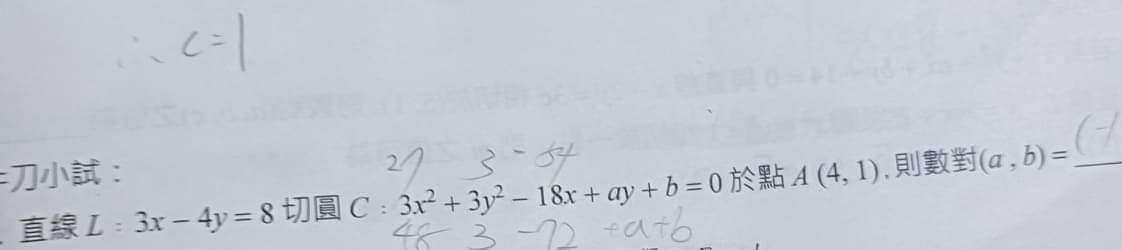 ∴ c=1
牛刀小試：
27 3 -54
直線 L：3x − 4y = 8 切圓 C：3x² + 3y² − 18x + ay + b = 0 於點 A (4, 1), 則數對(a , b) = (-1
48 3 -72 +a+b